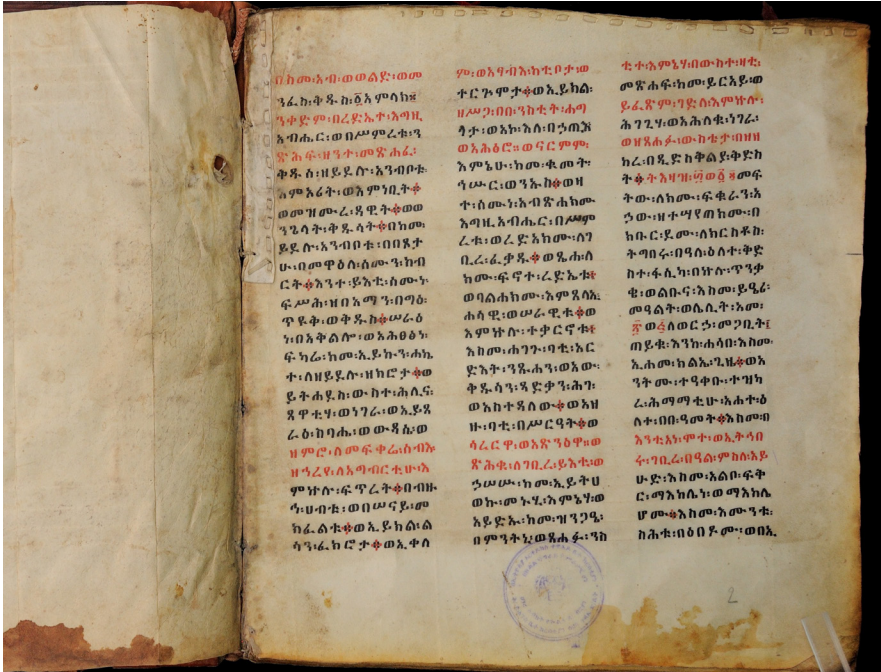 በስመ፡አብ፡ወወልድ፡ወመ
ንፈስ፡ቅዱስ፡፩አምላክ።
ንቀድም፡በረድኤተ፡እግዚ
አብሔር፡ወበሥምረቱ፡ን
ጽሕፍ፡ዝንተ፡መጽሐፈ፡
ቅዱስ፡ዘይደሉ፡አንብቦቱ፡
እምአሪት፡ወእምነቢት፨
ወመዝሙረ፡ዳዊት፨ወወ
ንጌላት፡ቅዱሳት፨በከመ፡
ይደሉ፡አንብቦቱ፡በበጾታ
ሁ፡በመዋዕለ፡ስሙን፡ከብ
ርት፨እንተ፡ይእቲ፡ስሙነ፡
ፍሥሕ፡ዝበአማን፡በጣዕ፡
ጥዩቅ፡ወቅዱስ፨ሠራዕ
ነ፡በአቅልሎ፡ወአሕፀፅነ፡
ፍካሬ፡ከመ፡ኢይኩን፡ሐኬ
ተ፡ለዘይደሉ፡ዘክሮታ፨ወ
ይትሐደስ፡ውስተ፡ሕሊና፡
ጻዋቲሃ፡ወነገራ፡ወኢይጸ
ራዕ፡ስባሔ፡ወውዳሴ፡ወ
ዝምሮ፡ለመፍቀሬ፡ሰብእ
ዘኀረየ፡ለአግብርቲሁ፡እ
ምኵሉ፡ፍጥረት፨በብዙ
ኅ፡ሀብቱ፡ወበሠናይ፡መ
ክፈልቱ፨ወኢይክል፡ል
ሳን፡ፈክሮታ፨ወኢቀለ
ም፡ወአፃብእ፡ከቲቦታ፡ወ
ተርጉሞታ፨ወኢይክል፡
ዘሥጋ፡በበ፡ንስቲት፡ሐጣ
ወአሕፅሮ።ወናርምም፡
እምኔሁ፡ከመ፡ቁመት፡
ኀሡር፡ወንኡስ፨ወዛ
ተ፡ስሙነ፡አብጽሐክሙ
እግዚአብሔር፡በሥም
ረቱ፡ወረድአክሙ፡ለገ
ቢረ፡ፈቃዱ፨ወጼሐ፡ለ
ክሙ፡ፍኖተ፡ረድኤቱ፡
ወባልሐክሙ፡እምጸላኢ
ሐሳዊ፡ወሠራዊቱ፨ወ
እምኵሉ፡ተቃርኖቱ፡
እስመ፡ሐገጉ፡ባቲ፡አር
ድእት፡ንጹሐን፡ወአው፡
ቅዱሳን፡ጻድቃን፡ሕገ፡
ወአስተዳለው፨ወአዘ
ዙ፡ባቲ፡በሥርዓት፨ወ
ሳረርዋ፡ወአጽንዕዋ።ወ
ጽሕቁ፡ለገቢረ፡ይእቲ፡ወ
ኃሠሡ፡ከመ፡ኢይትሀ
ወኩ፡መኑሂ፡እምኔሃ፡ወ
ኢይድኡ፡ከመ፡ዝንጋዔ፡
በምንትኒ፡ወጸሐፉ፡ንስ
ቲተ፡እምኔሃ፡በውስተ፡ዛቲ፡
መጽሐፍ፡ከመ፡ይርአይ፡ወ
ይፈጽም፡ገድለ፡እምኵሉ፡
ሕገጊሃ፡ወአሕለቁ፡ነገራ፡
ወዘጸሐፉ፡ውስቴታ፡በዘዝ
ክረ፡በዲድስቅልያ፡ቅድስ
ት፨ትእዛዝ፡፴ወ፩፡መፍ
ትው፡ለክሙ፡ፍቁራን፡አ
ኃው፡ዘተሣየጠክሙ፡በ
ክቡር፡ደሙ፡ለክርስቶስ፡
ትግበሩ፡በዓለ፡ዕለተ፡ቅድ
ስተ፡ፋሲካ፡በኵሉ፡ጥንቃ
ቄ፡ወልቡና፡እስመ፡ይዔሪ፡
መዓልት፡ወሌሊት፡አመ፡
ጠይቁ፡እንከ፡ሐሳበ፡እስመ፡
ኢሐመ፡ክልኤ፡ጊዜ፨ወአ
ንትሙ፡ተዓቀቡ፡ተዝካ
ረ፡ሕማማቲሁ፡አሐተ፡ዕ
ለተ፡በበ፡ዓመት፨እስመ፡በ
እንቲአነ፡ሞተ፡ወኢትኅበ
ሩ፡ገቢረ፡በዓል፡ምስለ፡አይ
ሁድ፡እስመ፡አልቦ፡ፍቅ
ር፡ማእከሌነ፡ወማእከሌ
ሆሙ፨እስመ፡እሙንቱ፡
ስሕቱ፡በዕበዶሙ፡ወበአ
2